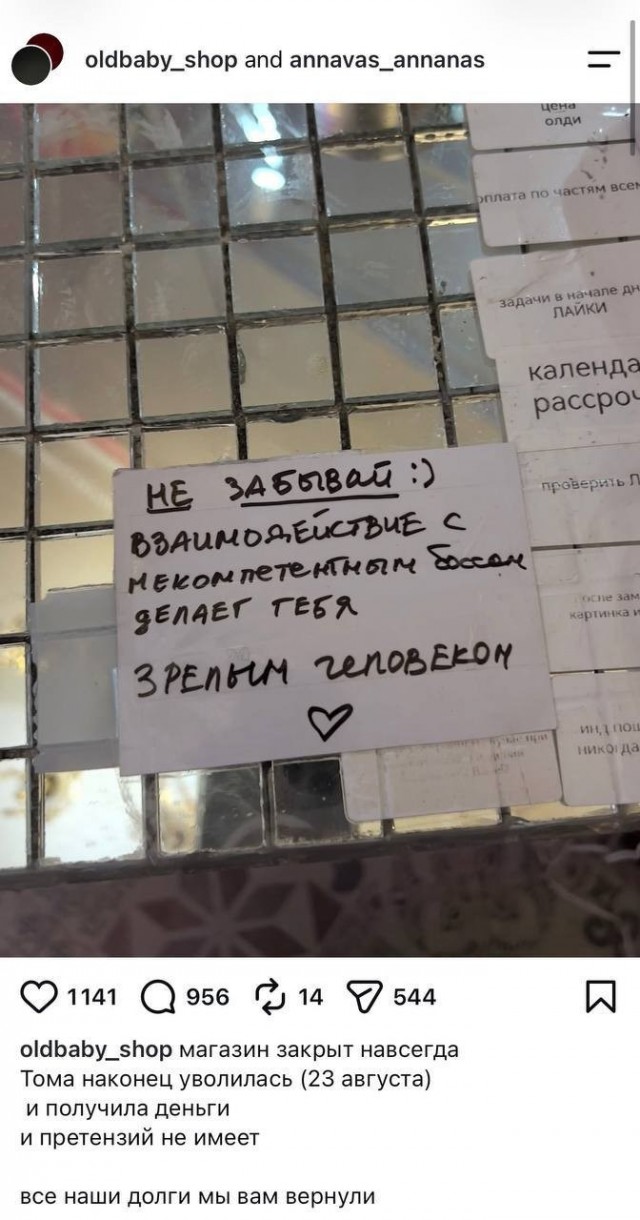 oldbaby_shop and annavas_annanas
цена
олди
оплата по частям
задачи в начале
ЛАЙКИ
календа
рассроч
НЕ ЗАБЫВАЙ :)
ВЗАИМОДЕЙСТВИЕ С
НЕКОМПЕТЕНТНЫМ боссом
ДЕЛАЕТ ТЕБЯ
ЗРЕЛЫМ ЧЕЛОВЕКОМ
♡
проверить
после зам
картинка и
никогда
1141 956 14 544
oldbaby_shop магазин закрыт навсегда
Тома наконец уволилась (23 августа)
и получила деньги
и претензий не имеет
все наши долги мы вам вернули